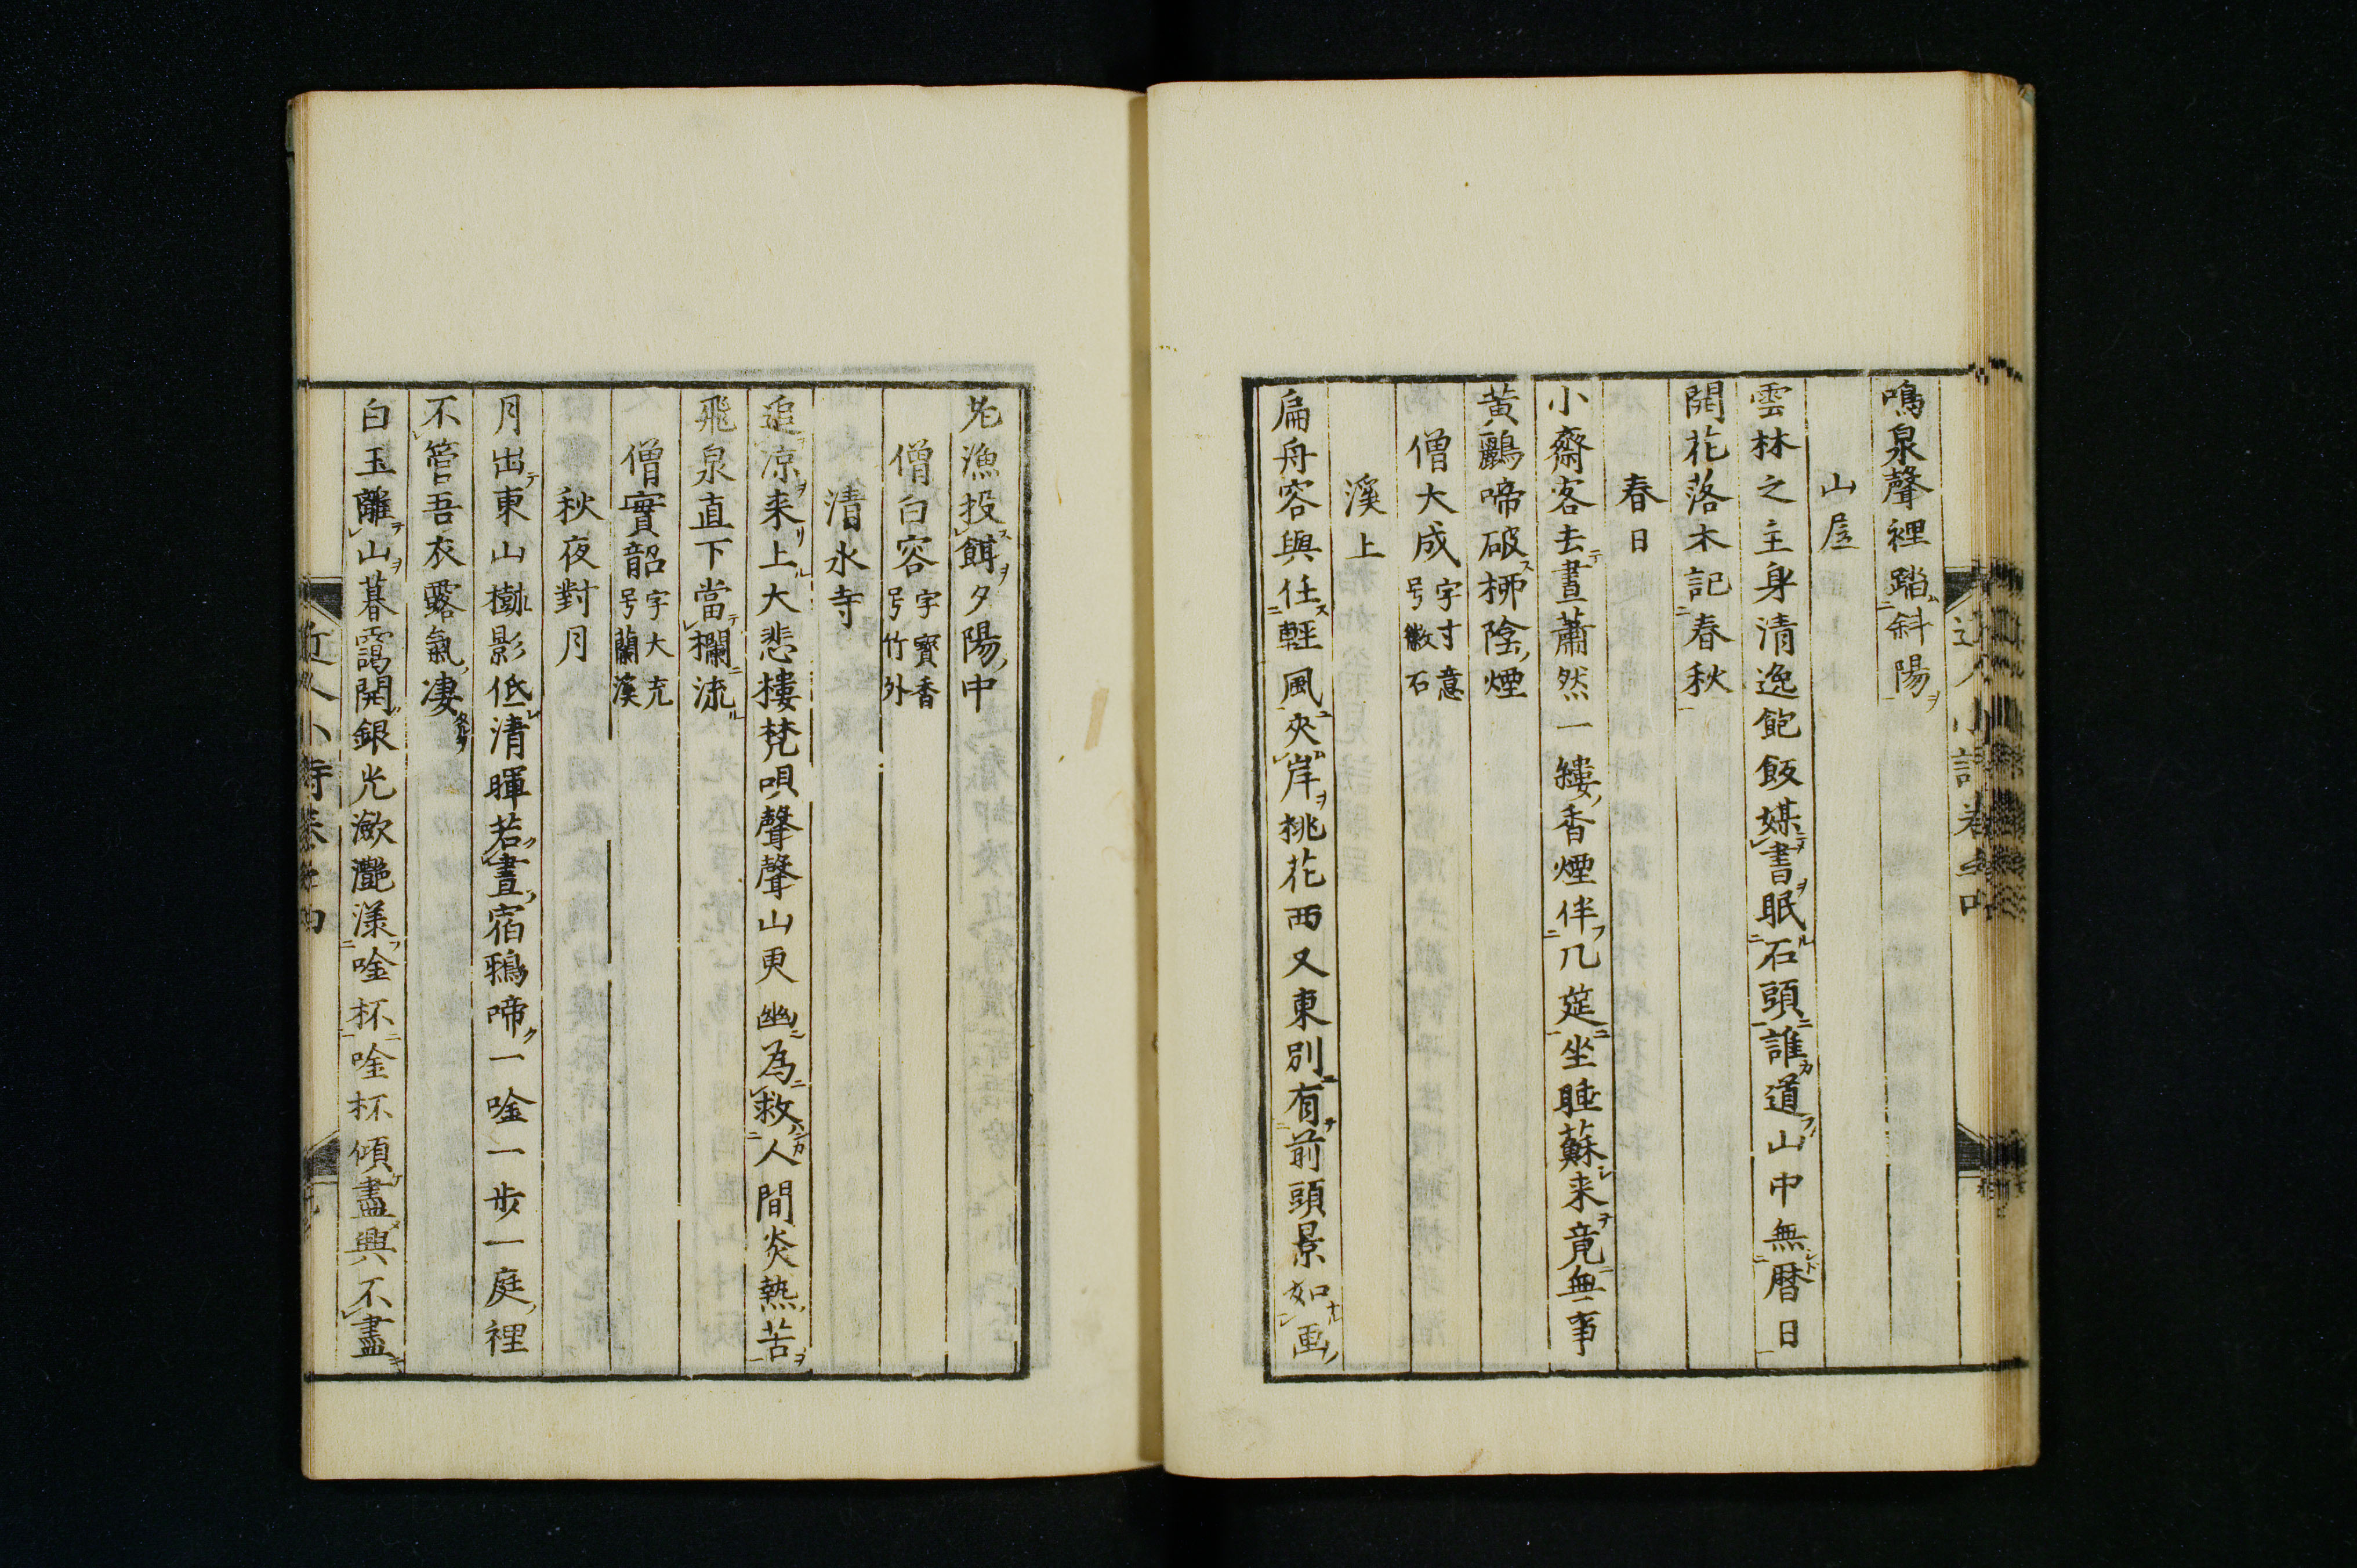 鳴泉聲裡踏斜陽
山居
雲林之主身清逸飽飯媒書眠石頭誰道山中無暦日
開花落木記春秋
春日
小齋客去晝蕭然一縷香煙伴几莚坐睡蘇来竟無事
黄鸝啼破栁陰煙
僧大成字寸意号皦石
溪上
扁舟容與任輕風夾岸桃花西又東別有前頭景如画
老漁投餌夕陽中
僧白容字寳香号竹外
清水寺
追凉来上大悲樓梵唄聲聲山更幽為救人間炎熱苦
飛泉直下當欄流
僧實韶字大充号蘭溪
秋夜對月
月出東山樹影低清暉若晝宿鴉啼一唫一歩一庭裡
不管吾衣露氣凄
白玉離山暮靄開銀光瀲灔漾唫杯唫杯傾盡興不盡
近人小詩巻四